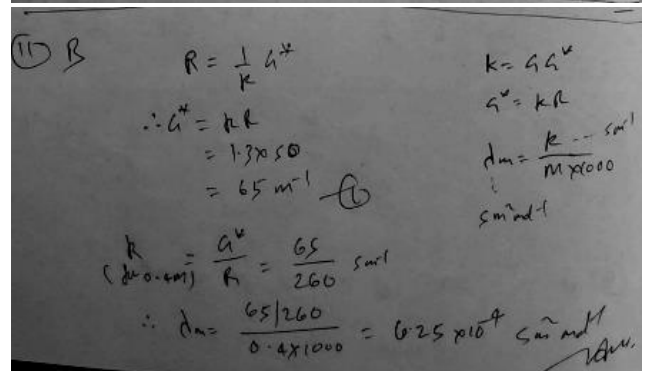 (11) B
R = 1/k G*
∴ G* = kR
= 1.3x50
= 65 m⁻¹ —①
k = GG*
G* = kR
λm = k ... Sm⁻¹ / Mx1000
Sm²mol⁻¹
k (for 0.4M) = G*/R = 65/260 Sm⁻¹
∴ λm = 65/260 / 0.4x1000 = 6.25 x10⁻⁴ Sm² mol⁻¹
Ans.